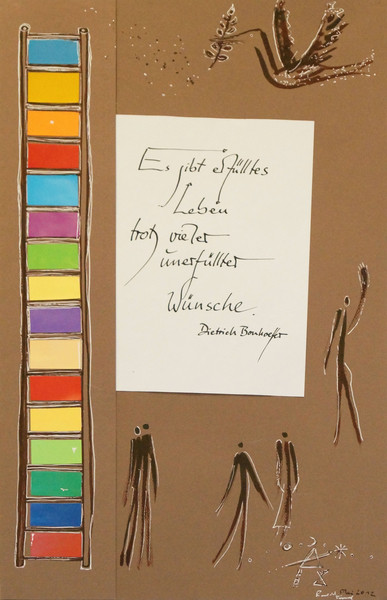 Es gibt erfülltes
Leben
trotz vieler
unerfüllter
Wünsche.
Dietrich Bonhoeffer
Mai 2012